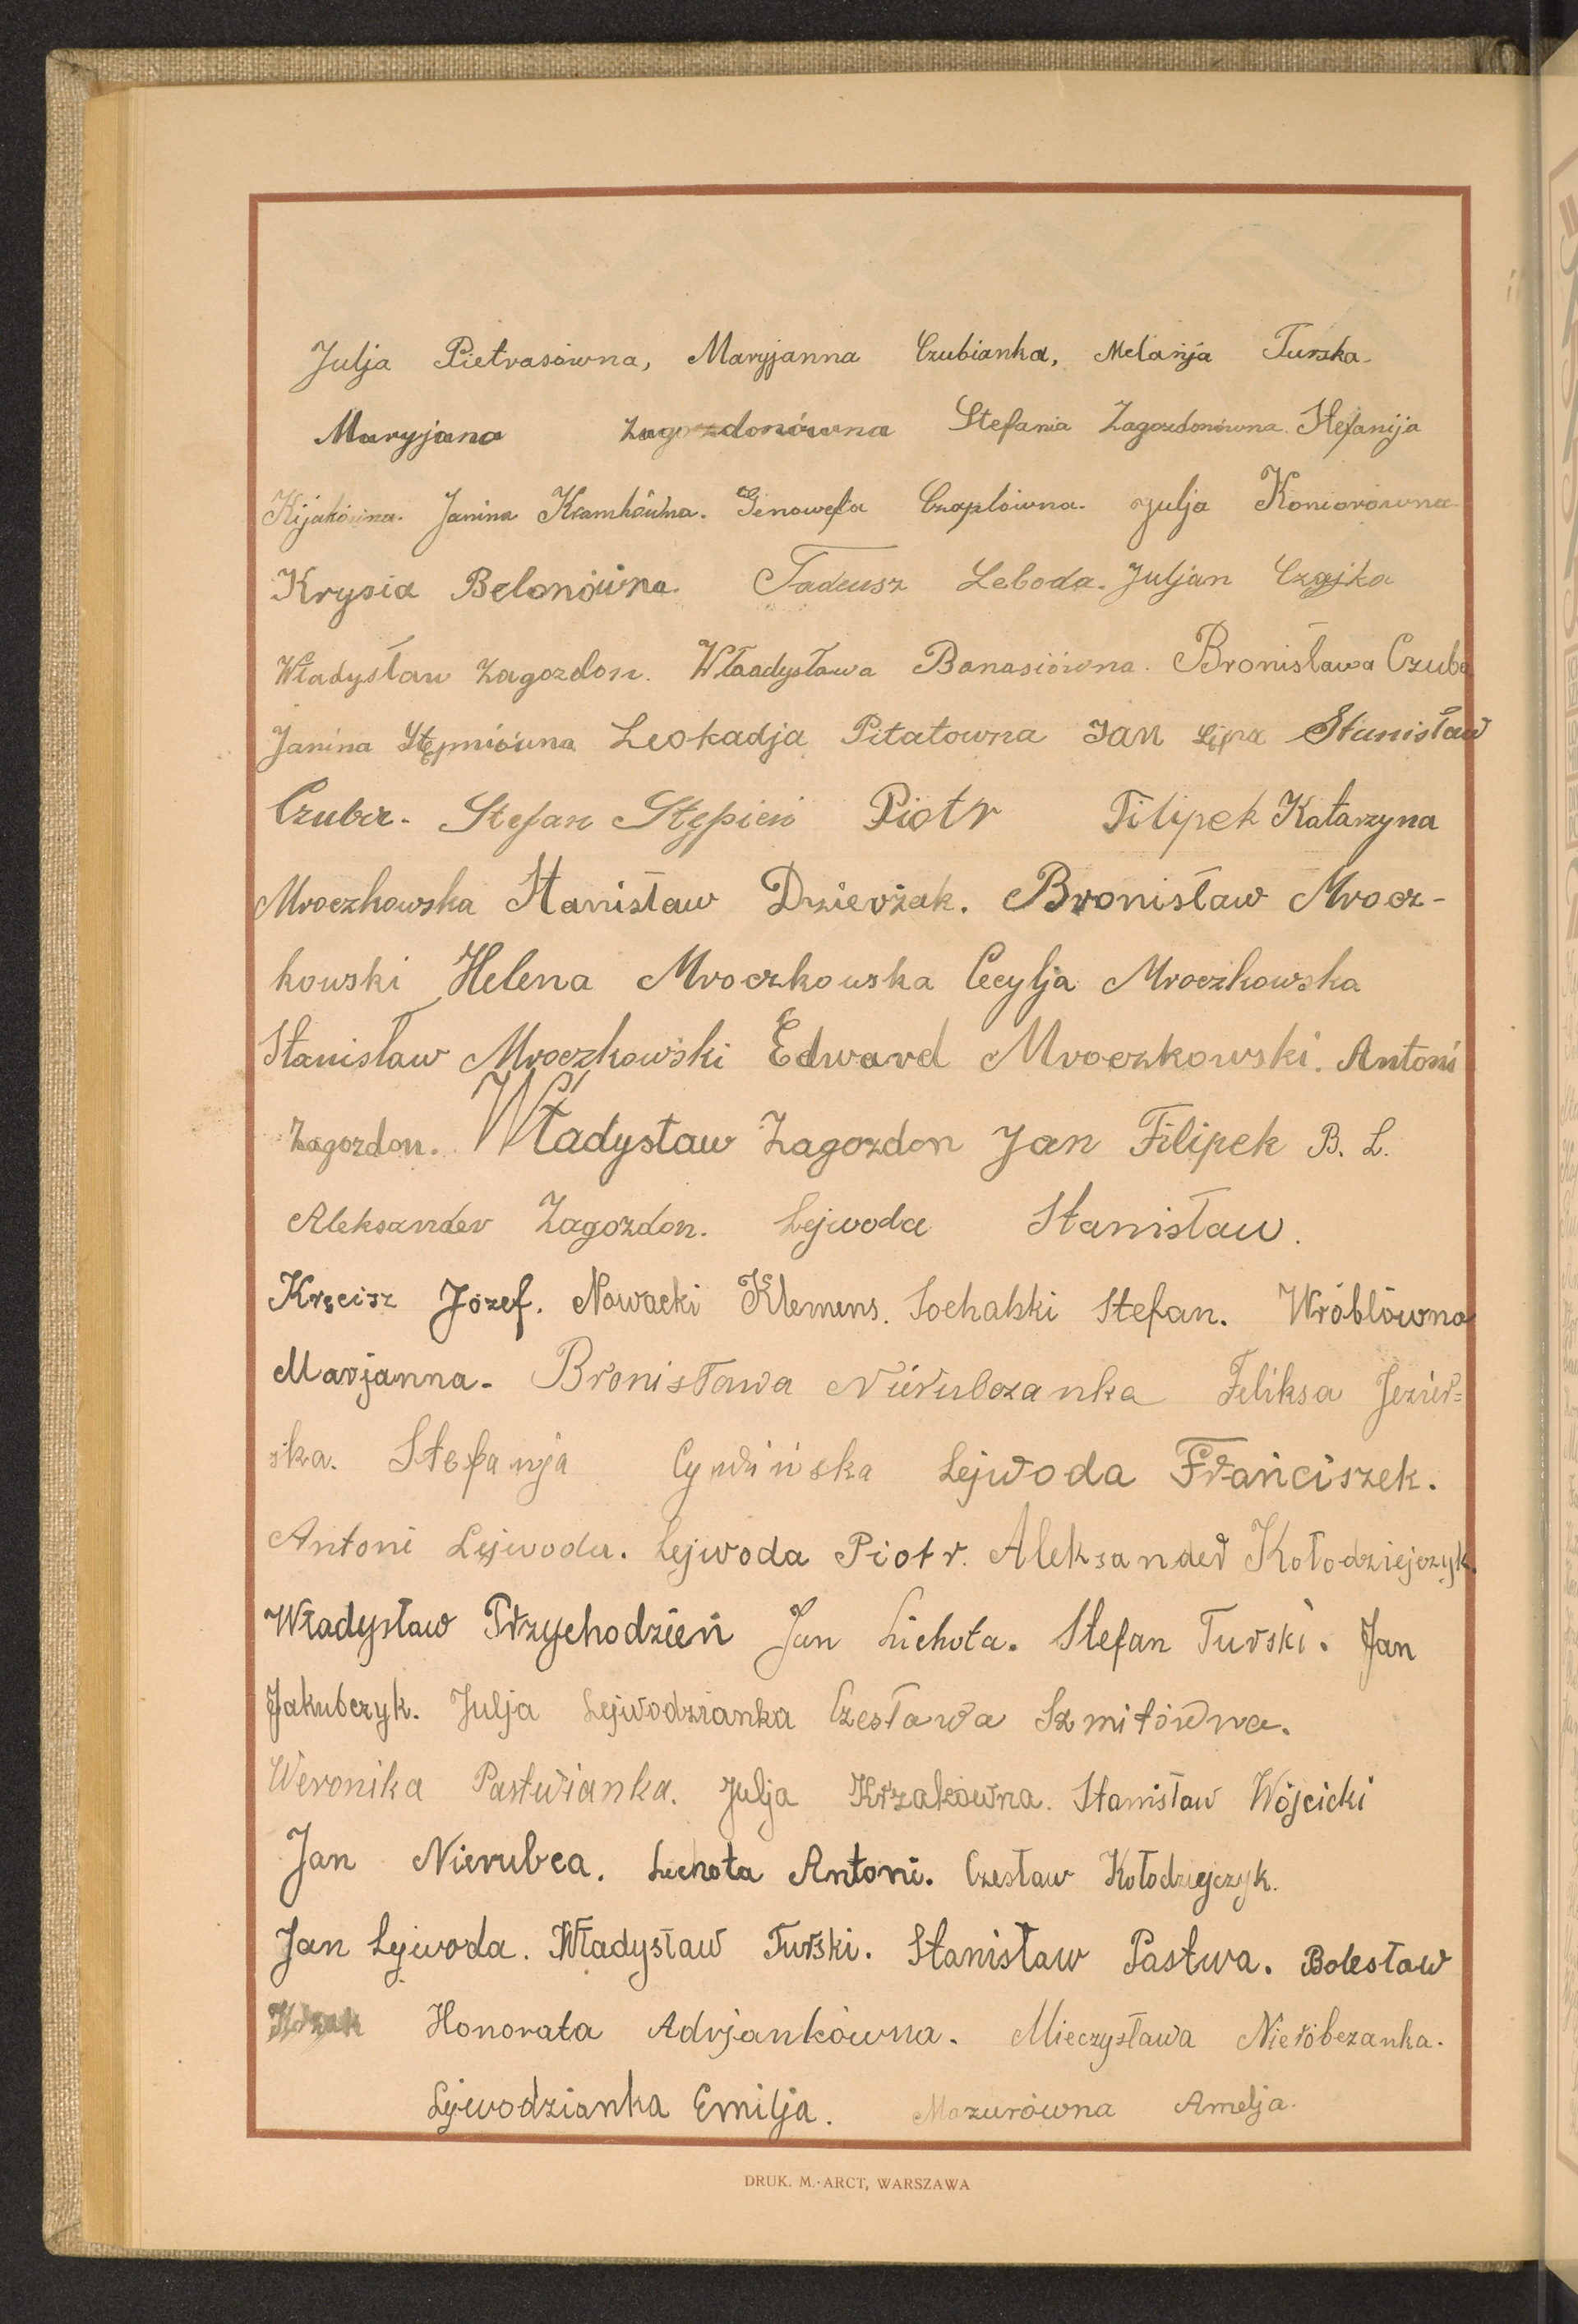 Julja Pietrasówna, Maryjanna Czubianka, Melanja Turska.
Maryjana Zagozdonówna Stefania Zagozdonówna. Stefanija
Kijakówna. Janina Kramkówna. Genowefa Czaplówna. Julja Koniorówna
Krysia Belonówna. Tadeusz Leboda. Juljan Czajka
Władysław Zagozdon. Władysława Banasiówna. Bronisława Czuba
Janina Stępniówna Leokadja Pitatowna Jan Lipa Stanisław
Czuba. Stefan Stępień Piotr Filipek Katarzyna
Mroczkowska Stanisław Dzierżak. Bronisław Mrocz-
kowski Helena Mroczkowska Cecylja Mroczkowska
Stanisław Mroczkowski Edward Mroczkowski. Antoni
Zagozdon. Władysław Zagozdon Jan Filipek B. L.
Aleksander Zagozdon. Lejwoda Stanisław.
Kręcisz Józef. Nowacki Klemens. Sochalski Stefan. Wróblówna
Marjanna. Bronisława Nierubczanka Feliksa Jezier=
ska. Stefanja Cywińska Lejwoda Franciszek.
Antoni Lejwoda. Lejwoda Piotr. Aleksander Kołodziejczyk.
Władysław Przychodzień Jan Lichota. Stefan Turski. Jan
Jakubczyk. Julja Lejwodzianka Czesława Szmitówna.
Weronika Pastwianka. Julja Krzakówna. Stanisław Wójcicki
Jan Nierubca. Lichota Antoni. Czesław Kołodziejczyk.
Jan Lejwoda. Władysław Turski. Stanisław Pastwa. Bolesław
Krzak Honorata Adrjankówna. Mieczysława Nieróbczanka.
Lejwodzianka Emilja. Mazurówna Amelja.
DRUK. M. ARCT, WARSZAWA